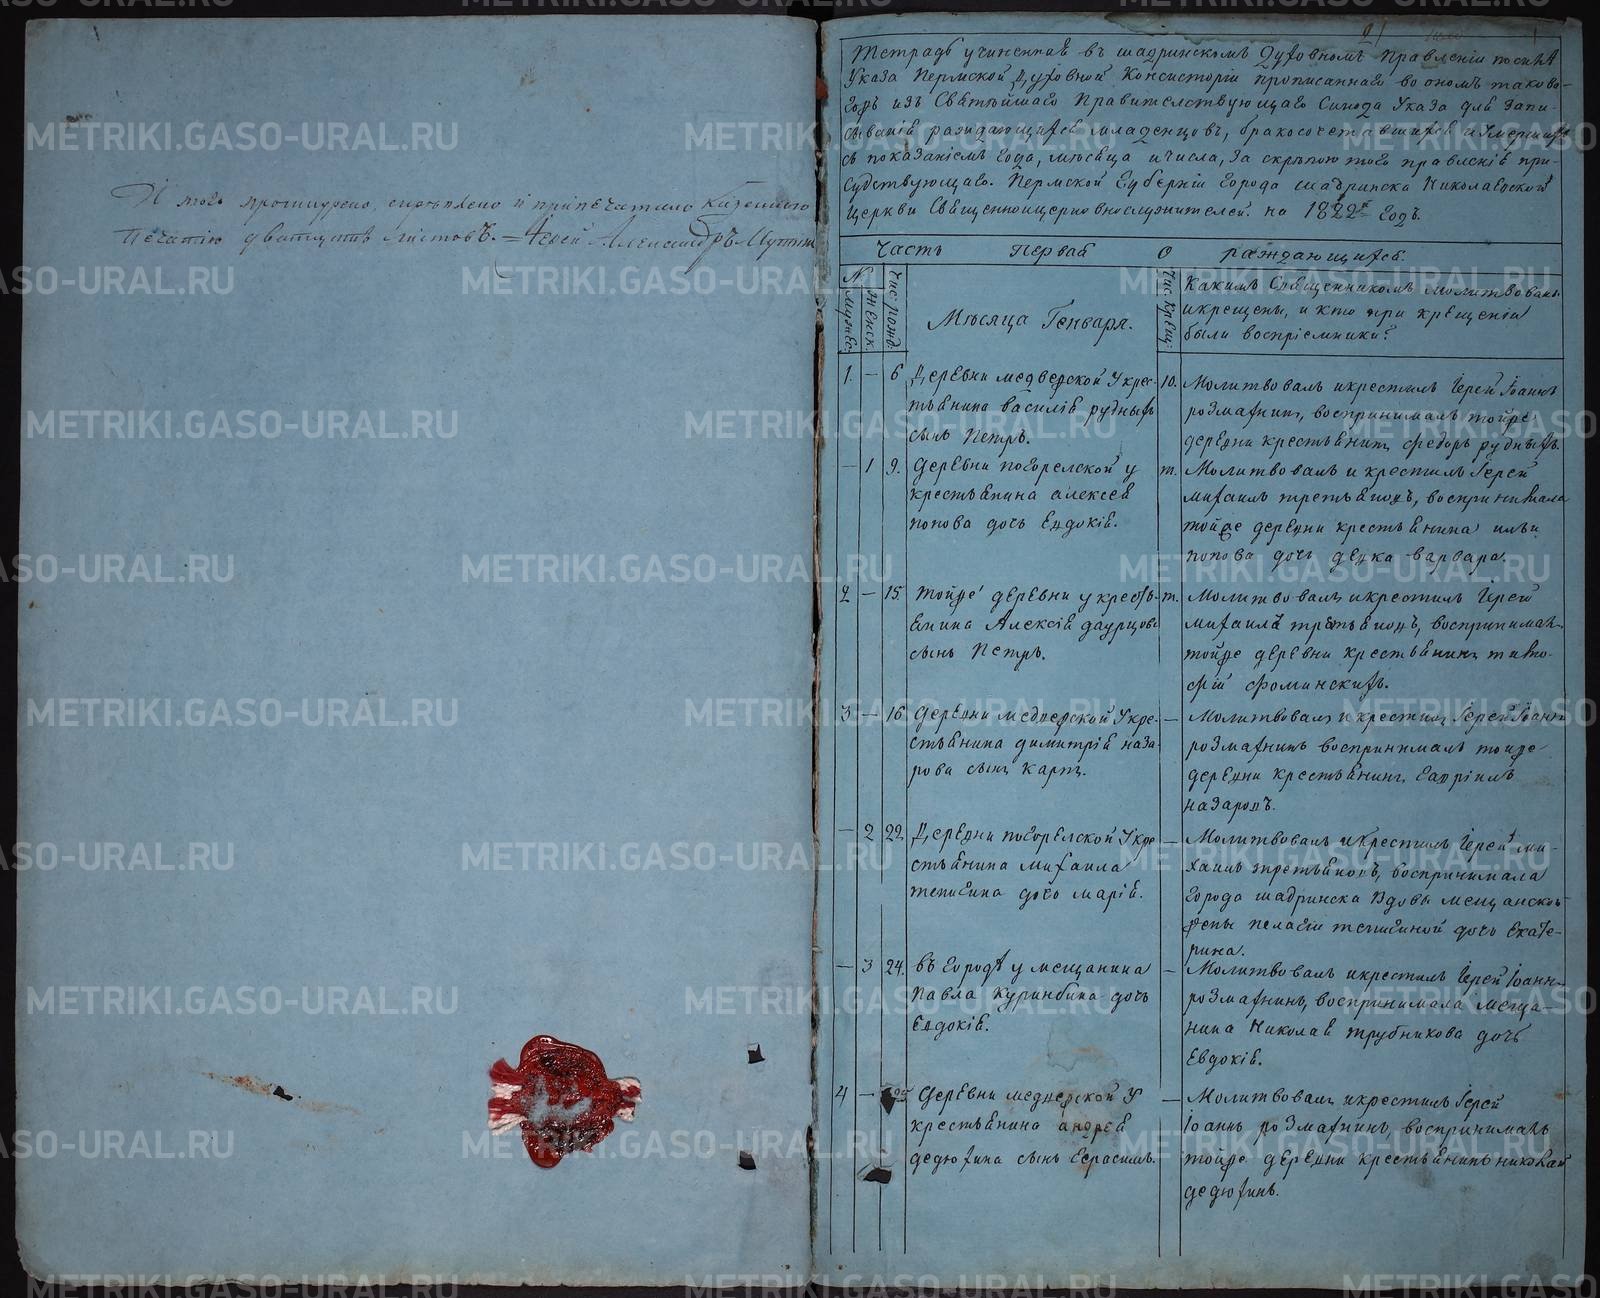 И того прошнурено, скреплено и припечатано казенною
печатію дватцать листовъ. — Іерей Александръ
21
Тетрадь учиненная въ шадринскомъ Духовномъ Правленіи по силѣ
Указа Пермской Духовной Консисторіи прописаннаго во ономъ таково-
го жъ изъ Святѣйшаго Правителствующаго Синода Указа для запи-
сыванія раждающихся младенцовъ, бракосочетавшихся и умершихъ
съ показаніемъ года, мѣсяца и числа, за скрѣпою того правленія при-
судствующаго. Пермской Губерніи города шадринска Николаевской
церкви Священноицерковнослужителей. на 1822й годъ.
Часть первая о раждающихся.
№
мужес.
женск.
Чис. рожд.
Мѣсяца Генваря.
Чис. крещ:
Какимъ Священникомъ молитвованы
и крещены, и кто при крещеніи
были воспріемники?
1. — 6 Деревни медверской у крес-
тьянина василія рудныхъ
сынъ Петръ.
10. Молитвовалъ и крестилъ Іерей Іоаннъ
розмахнинъ, воспринималъ тойже
деревни крестьянинъ федоръ рудныхъ.
— 1 9. деревни погорелской у
крестьянина алексея
попова дочь Евдокія.
т. Молитвовалъ и крестилъ Іерей
михаилъ третьяковъ, воспринимала
тойже деревни крестьянина ильи
попова дочь девка варвара.
2 — 15. тойже деревни у кресть-
янина Алексія даурцова
сынъ Петръ.
т. Молитвовалъ и крестилъ Іерей
михаилъ третьяковъ, воспринимал-
тойже деревни крестьянинъ тимо-
фій фоминскихъ.
3 — 16 деревни медверской у кре-
стьянина димитрія наза-
рова сынъ карпъ.
— Молитвовалъ и крестилъ Іерей Іоаннъ
розмахнинъ воспринималъ тойже
деревни крестьянинъ гавріилъ
назаровъ.
— 2 22. Деревни погорелской у кре
стьянина михаила
тепигина дочь марія.
— Молитвовалъ и крестилъ Іерей ми-
хаилъ третьяковъ, воспринимала
города шадринска вдовы мещанской
жены пелагіи тепигиной дочь екате-
рина.
— 3 24. въ городѣ у мещанина
павла куринбина дочь
Евдокія.
— Молитвовалъ и крестилъ Іерей Іоаннъ
розмахнинъ, воспринимала меща-
нина Николая трубникова дочь
Евдокія.
4 — 25 деревни медверской у
крестьянина андрея
дедюхина сынъ герасимъ.
— Молитвовалъ и крестилъ Іерей
Іоаннъ розмахнинъ, воспринималъ
тойже деревни крестьянинъ николай
дедюхинъ.